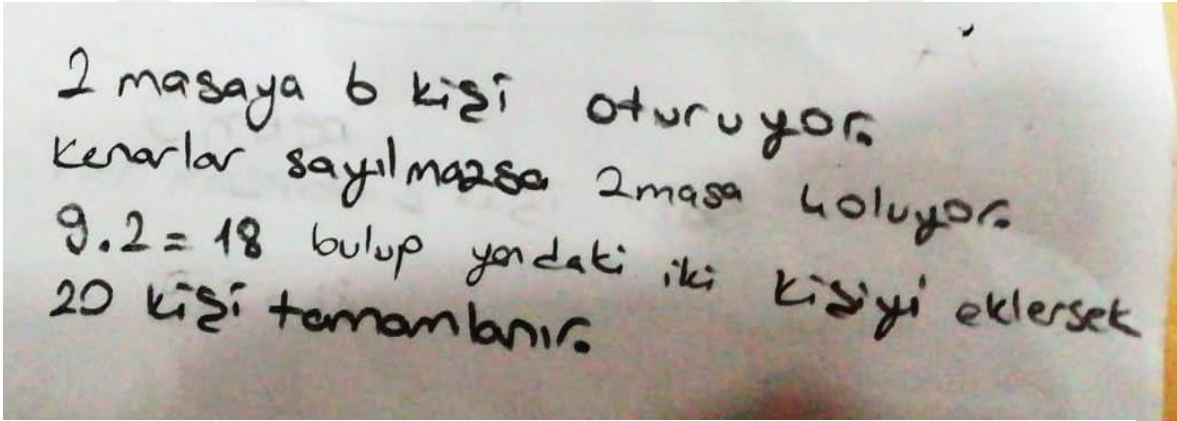 2 masaya 6 kişi oturuyor.
Kenarlar sayılmazsa 2masa 4oluyor.
9.2=18 bulup yandaki iki kişiyi eklersek
20 kişi tamamlanır.